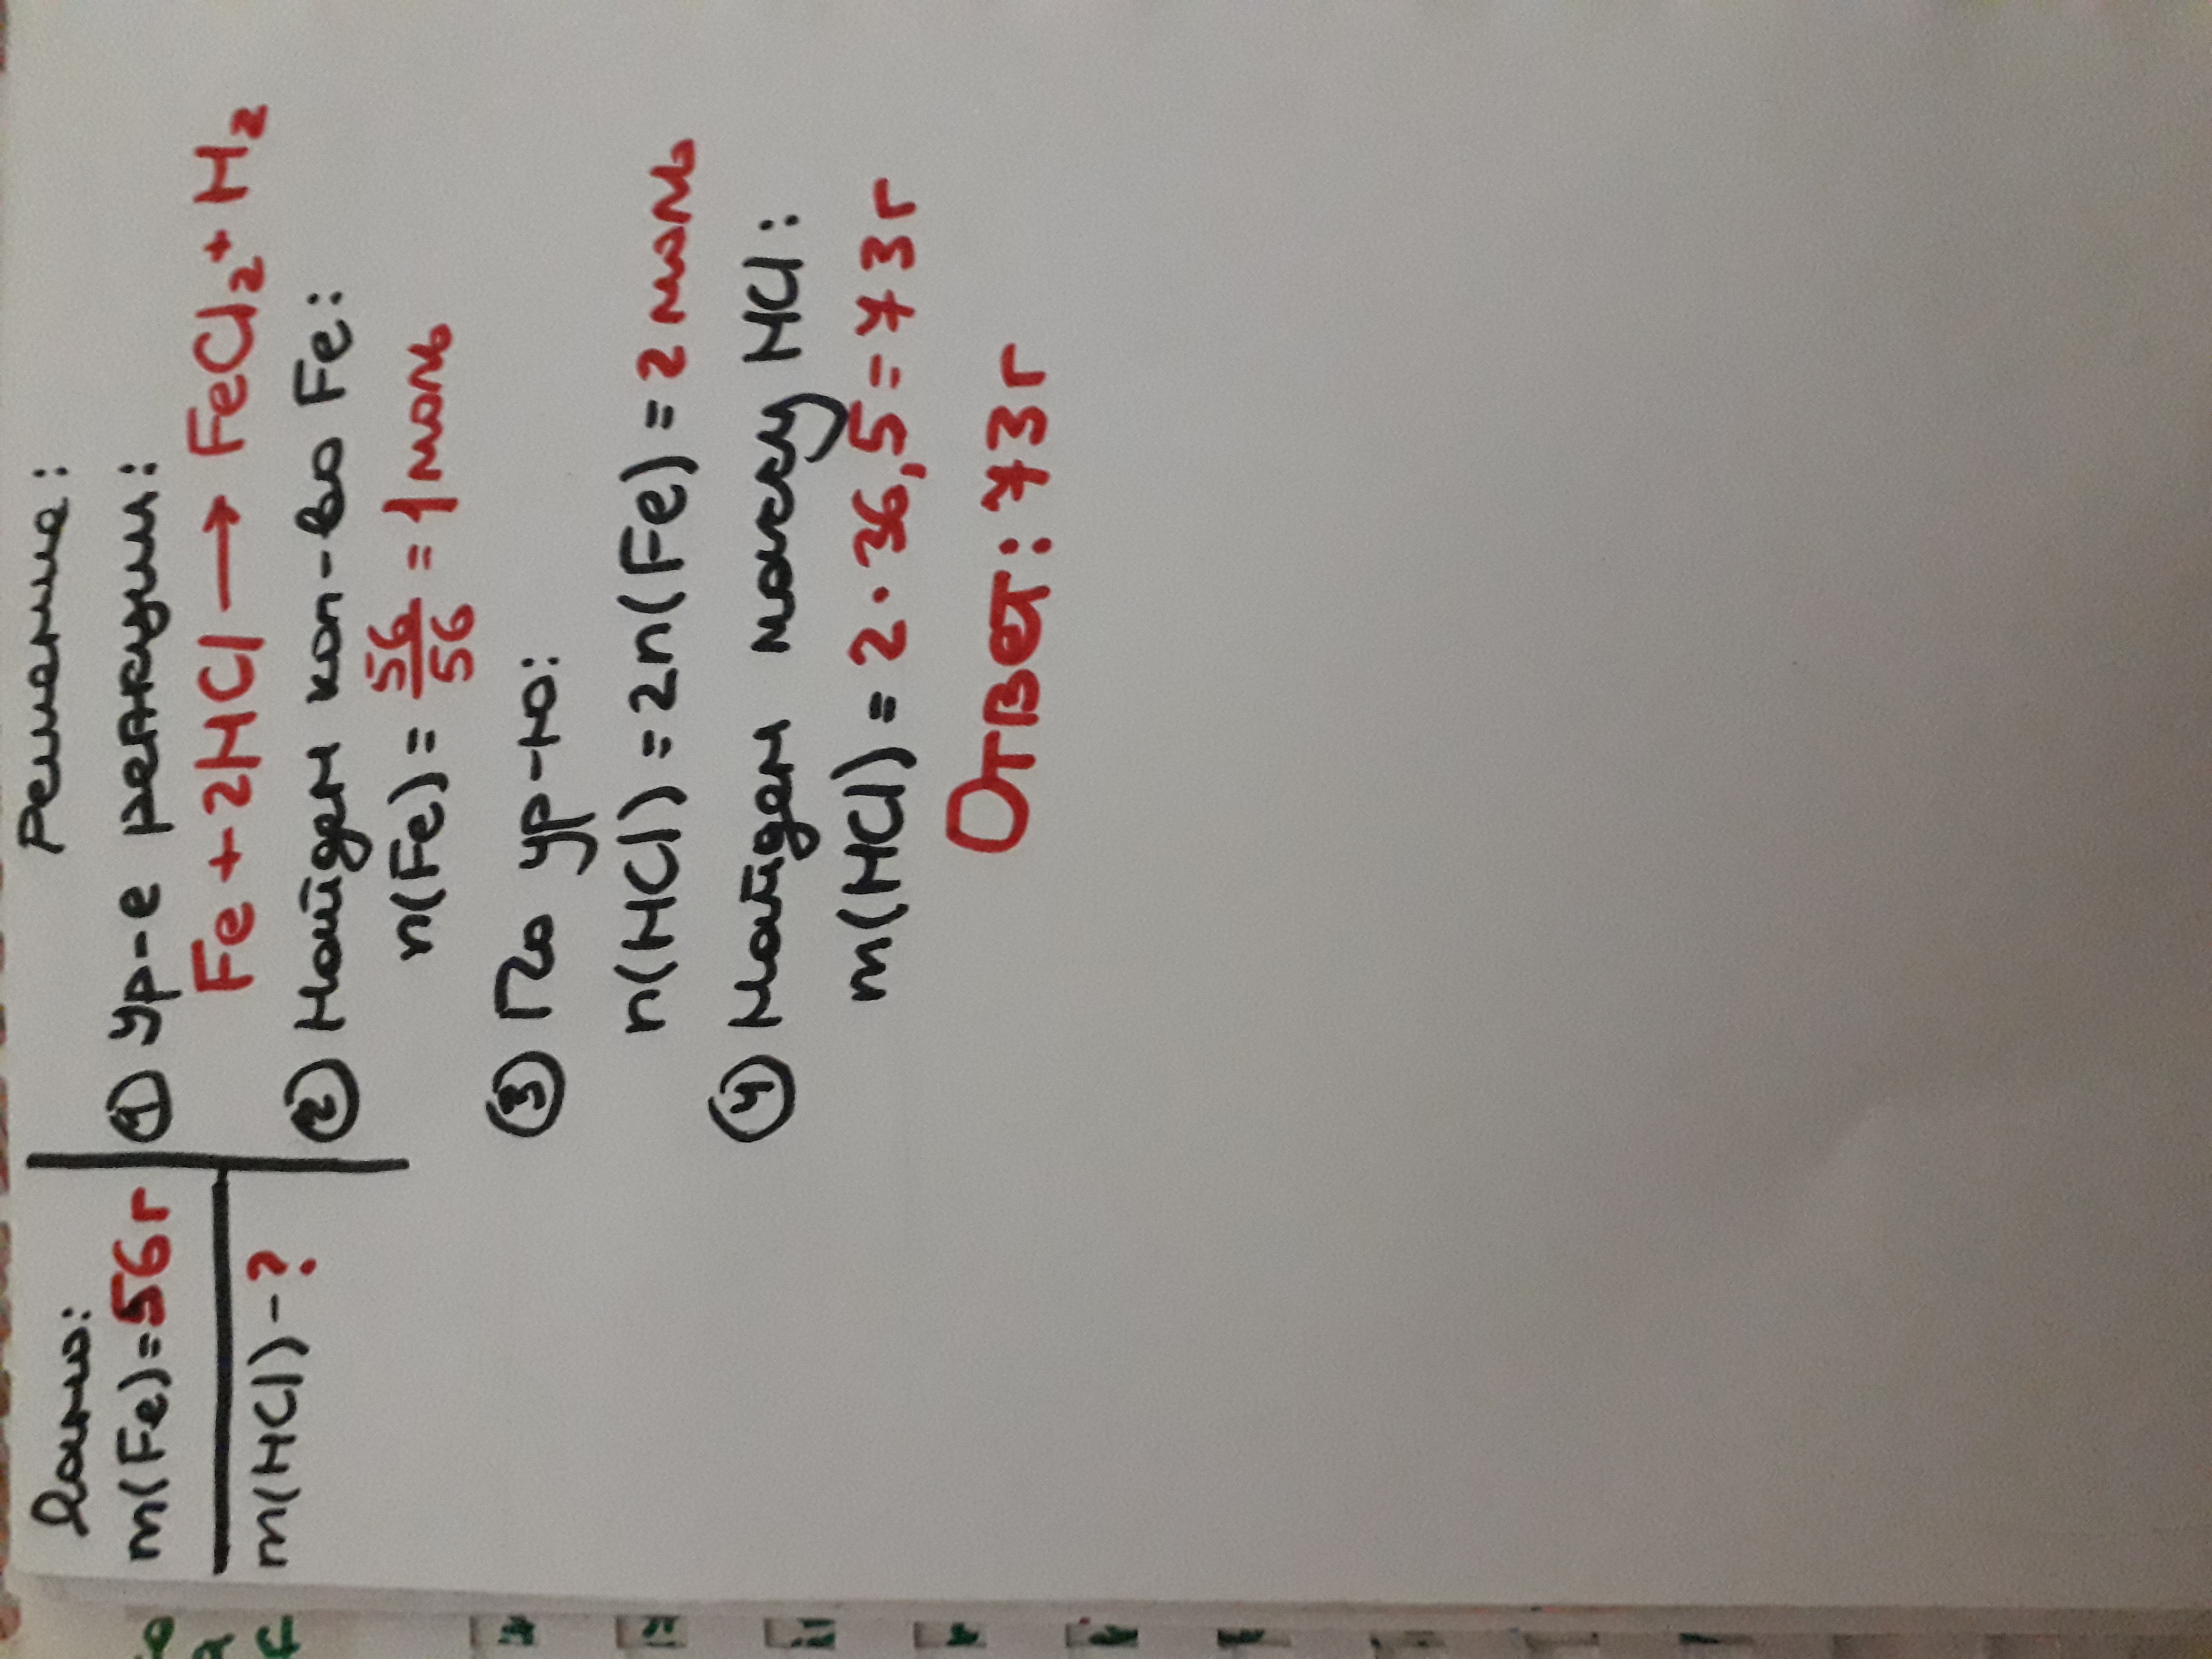 Дано:
m(Fe)=56г
m(HCl)-?
Решение:
① ур-е реакции:
Fe + 2HCl → FeCl₂ + H₂
② Найдем кол-во Fe:
n(Fe) = 56/56 = 1 моль
③ По ур-ю:
n(HCl) = 2n(Fe) = 2 моль
④ Найдем массу HCl:
m(HCl) = 2 · 36,5 = 73г
Ответ: 73г